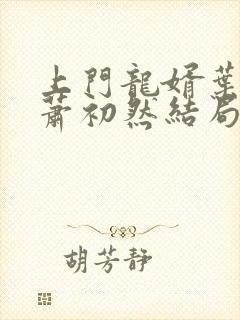 上門龍婿葉
蕭初然結局
胡芳靜